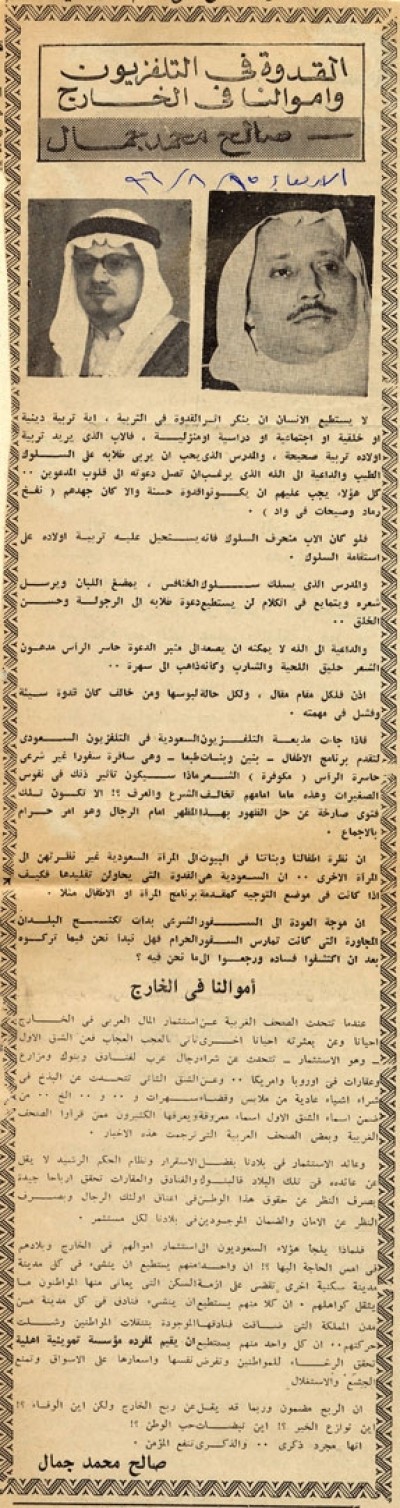 القدوة في التلفزيون
واموالنا في الخارج
— صالح محمد جمال
الاربعاء ٩٥/٨/٢٦
لا يستطيع الانسان ان ينكر اثر القدوة في التربية ، اية تربية دينية
او خلقية او اجتماعية او دراسية او منزلية ، فالاب الذي يريد تربية
اولاده تربية صحيحة ، والمدرس الذي يحب ان يربي طلابه على السلوك
الطيب والداعية الى الله الذي يرغب ان تصل دعوته الى قلوب المدعوين ٠٠
كل هؤلاء يجب عليهم ان يكونوا قدوة حسنة والا كان جهدهم ( نفخ
رماد وصيحات في واد ) ٠
فلو كان الاب منحرف السلوك فانه يستحيل عليه تربية اولاده على
استقامة السلوك ٠
والمدرس الذي يسلك سلوك الخنافس ، يمضغ اللبان ويرسل
شعره ويتمايع في الكلام لن يستطيع دعوة طلابه الى الرجولة وحسن
الخلق ٠٠
والداعية الى الله لا يمكنه ان يصعد الى منبر الدعوة حاسر الرأس مدهون
الشعر حليق اللحية والشارب وكانه ذاهب الى سهرة ٠٠
اذن فلكل مقام مقال ، ولكل حالة لبوسها ومن خالف كان قدوة سيئة
وفشل في مهمته ٠
فاذا جاءت مذيعة التلفزيون السعودية في التلفزيون السعودي
لتقدم برنامج الاطفال – بنين وبنات طبعا – وهي سافرة سفورا غير شرعي
حاسرة الرأس ( مكوفرة ) الشعر ماذا سيكون تاثير ذلك في نفوس
الصغيرات وهذه ماما امامهم تخالف الشرع والعرف ؟! الا تكون تلك
فتوى صارخة عن حل الظهور بهذا المظهر امام الرجال وهو امر حرام
بالاجماع ٠
ان نظرة اطفالنا وبناتنا في البيوت الى المرأة السعودية غير نظرتهن الى
المرأة الاخرى ٠٠ ان السعودية هي القدوة التي يحاولن تقليدها فكيف
اذا كانت في موضع التوجيه كمقدمة برنامج المرأة او الاطفال مثلا ٠
ان موجة العودة الى السفور الشرعي بدات تكتسح البلدان
المجاورة التي كانت تمارس السفور الحرام فهل نبدا نحن فيما تركوه
بعد ان اكتشفوا فساده ورجعوا الى ما نحن فيه ؟
أموالنا في الخارج
عندما تتحدث الصحف الغربية عن استثمار المال العربي في الخارج
احيانا وعن بعثرته احيانا اخرى تاتي بالعجب العجاب فعن الشق الاول
– وهو الاستثمار – تتحدث عن شراء رجال عرب لفنادق وبنوك ومزارع
وعقارات في اوروبا وامريكا ٠٠ وعن الشق الثاني تتحدث عن البذخ في
شراء اشياء عادية من ملابس وقضاء سهرات و ٠٠ و ٠٠ الخ ٠٠ من
ضمن اسماء الشق الاول اسماء معروفة ويعرفها الكثيرون ممن قراوا الصحف
الغربية وبعض الصحف العربية التي ترجمت هذه الاخبار ٠
وعائد الاستثمار في بلادنا بفضل الاستقرار ونظام الحكم الرشيد لا يقل
عن عائده في تلك البلاد فالبنوك والفنادق والعقارات تحقق ارباحا جيدة
بصرف النظر عن حقوق هذا الوطن في اعناق اولئك الرجال وبصرف
النظر عن الامان والضمان الموجودين في بلادنا لكل مستثمر ٠
فلماذا يلجا هؤلاء السعوديون الى استثمار اموالهم في الخارج وبلادهم
في امس الحاجة اليها ؟! ان واحدا منهم يستطيع ان ينشىء في كل مدينة
مدينة سكنية اخرى تقضي على ازمة السكن التي يعاني منها المواطنون ما
يثقل كواهلهم ٠ ان كلا منهم يستطيع ان ينشىء فنادق في كل مدينة من
مدن المملكة التي ضاقت فنادقها الموجودة بتنقلات المواطنين وشلت
حركتهم ٠٠ ان كل واحد منهم يستطيع ان يقيم لمفرده مؤسسة تموينية اهلية
تحقق الرخاء للمواطنين وتفرض نفسها واسعارها على الاسواق وتمنع
الجشع والاستغلال
ان الربح مضمون وربما قد يقل عن ربح الخارج ولكن اين الوفاء ؟!
اين نوازع الخير ؟! اين نبضات حب الوطن ؟!
انها مجرد ذكرى ٠٠ والذكرى تنفع المؤمن ٠
صالح محمد جمال